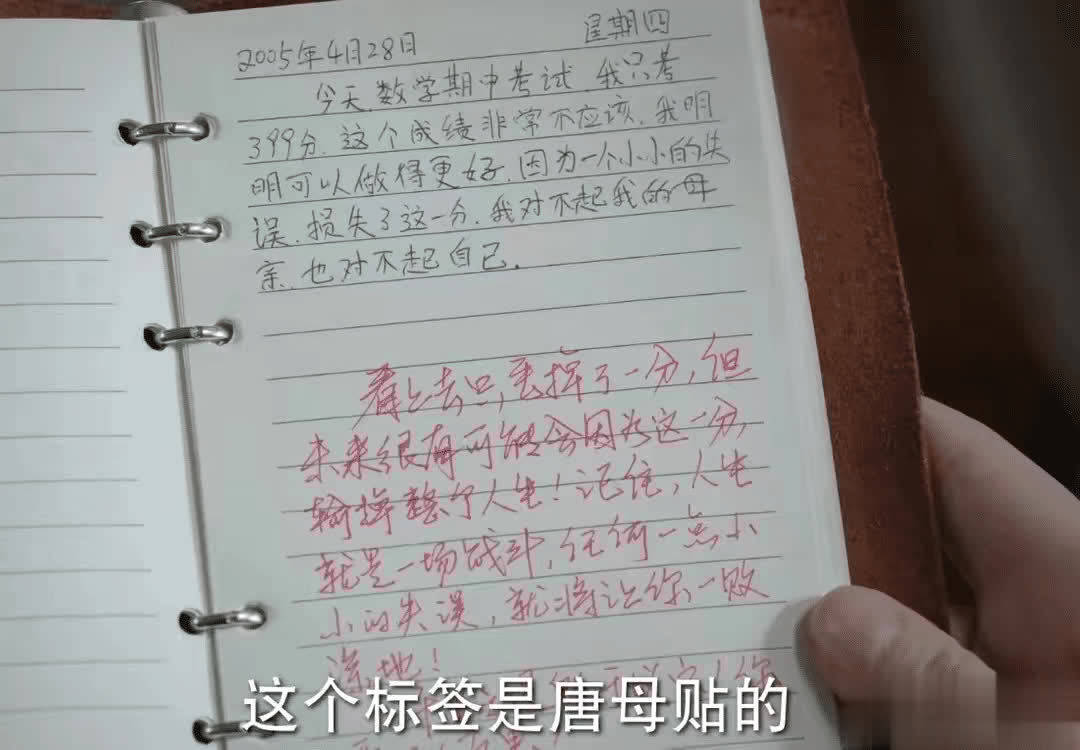 2005年4月28日 星期四
今天,数学期中考试,我只考
399分.这个成绩非常不应该.我明
明可以做得更好.因为一个小小的失
误.损失了这一分.我对不起我的母
亲.也对不起自己.
看上去只丢掉了一分,但
未来很有可能会因为这一分,
输掉整个人生!记住,人生
就是一场战斗,任何一点小
小的失误,就将让你一败
涂地!
这个标签是唐母贴的